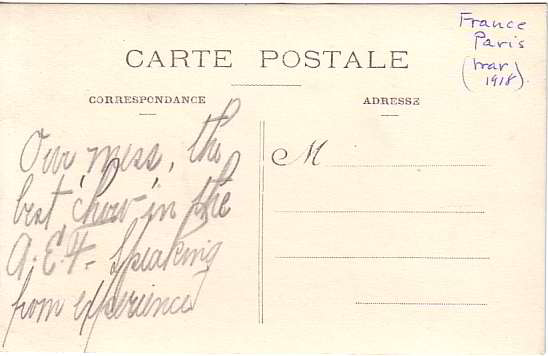 France
Paris
(war
1918)
CARTE POSTALE
CORRESPONDANCE
ADRESSE
Our mess, the
best 'chow' in the
A.E.F. Speaking
from experience
M